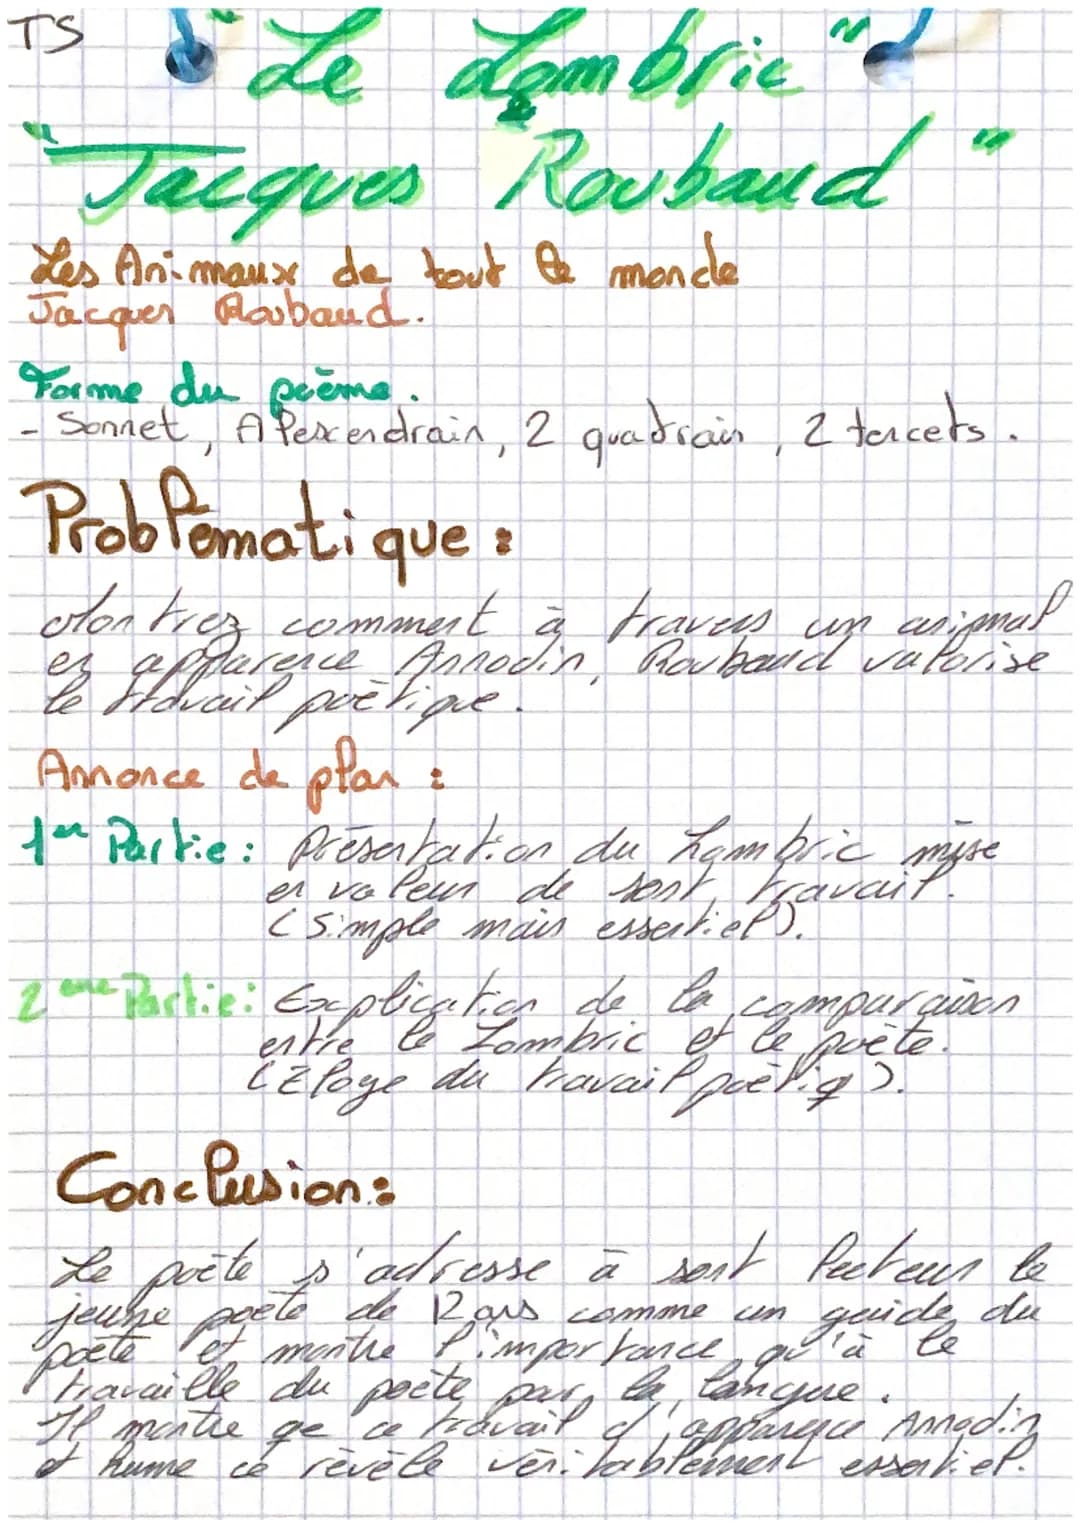 TS
"Le Lombric"
"Jacques Roubaud"
Les Animaux de tout le monde
Jacques Roubaud.
Forme du poème.
- Sonnet, Alexendrain, 2 quadrain, 2 tercets.
Problématique :
Montrez comment à travers un animal
en apparence Annodin, Roubaud valorise
le travail poétique.
Annonce de plan :
1er Partie : Présentation du Lombric mise
en valeur de sont travail.
(Simple mais essentiel).
2eme Partie : Explication de la comparaison
entre le Lombric et le poète.
(Eloge du travail poétiq).
Conclusion :
Le poète s'adresse à sont lecteur le
jeune poète de 12 ans comme un guide du
poète et montre l'importance qu'à le
travaille du poète par la langue.
Il montre qe ce travail d'apparence Annodin
et hume ce révèle véritablement essentiel.